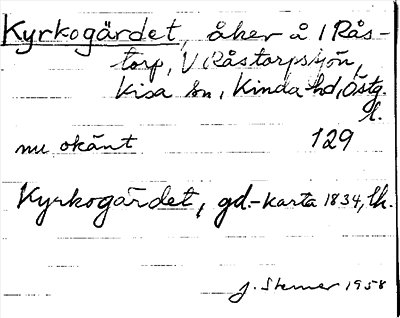 Kyrkogärdet, åker å 1 Rås-
torp, V Råstorpssjön,
Kisa sn, Kinda hd, Östg.
l.
nu okänt 129
Kyrkogärdet, gd.-karta 1834, th.
J. Stenner 1958